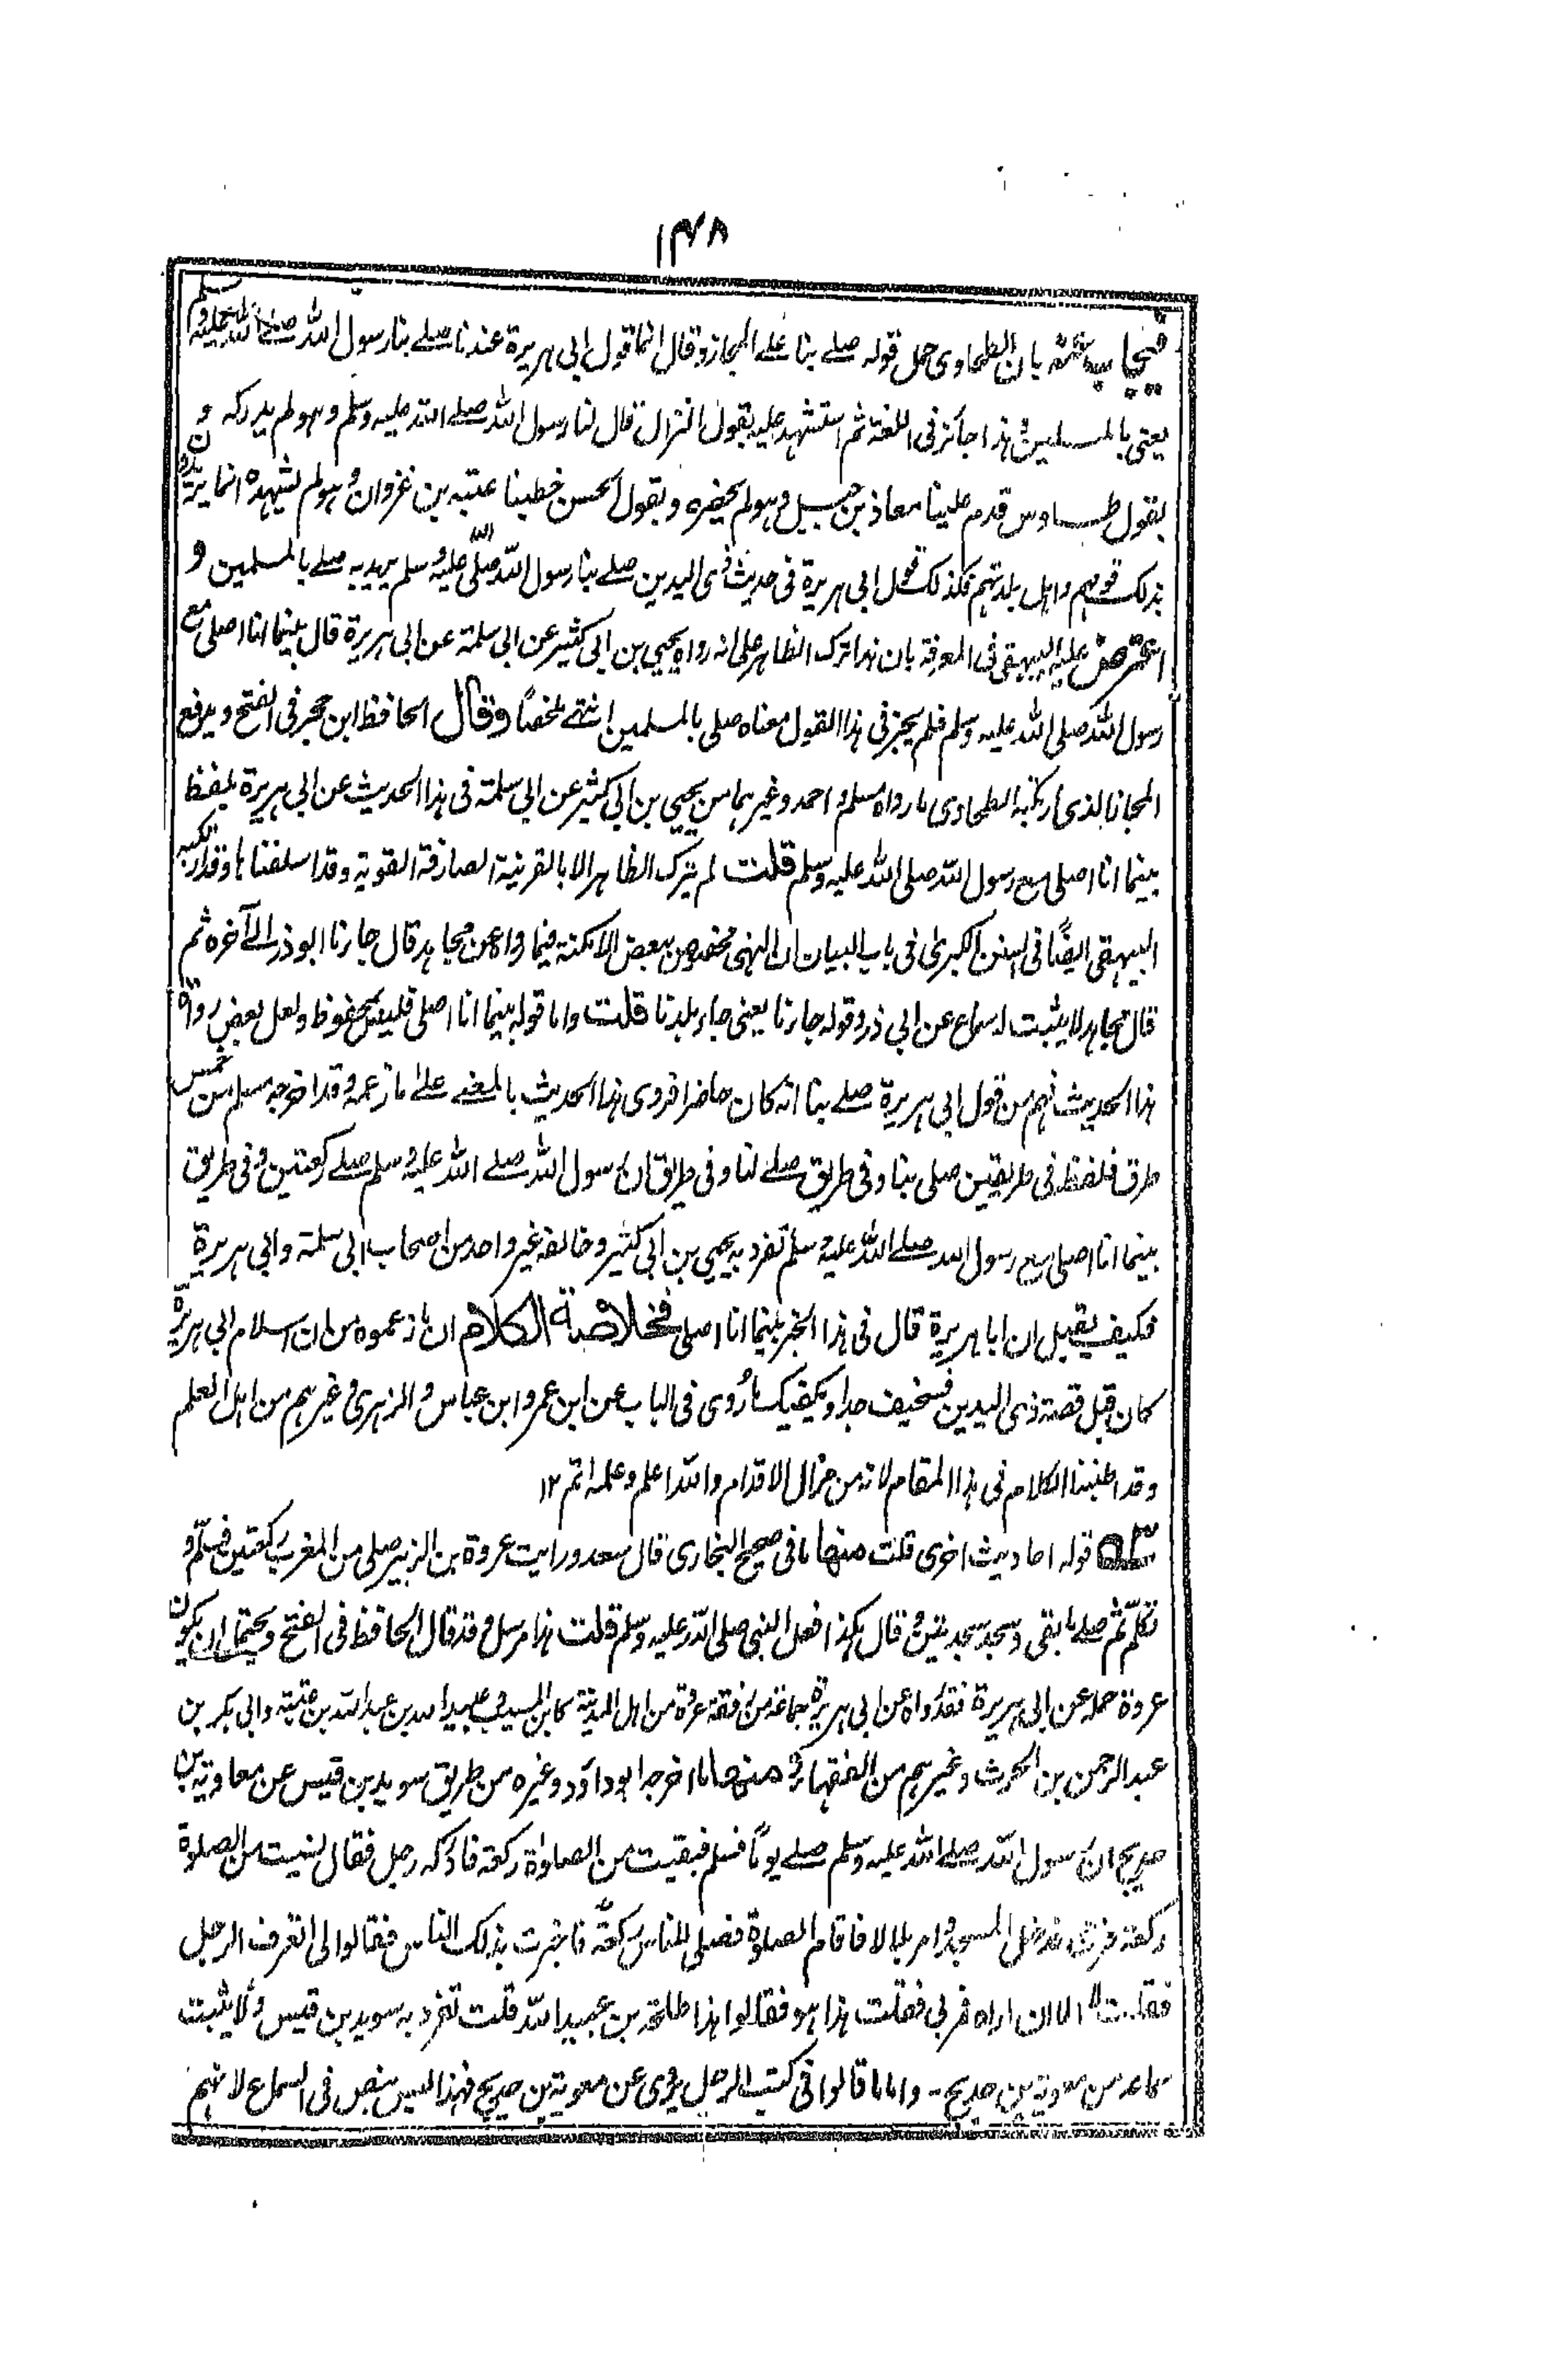 ۱۴۸
فيجاب عنه بان الطحاوى حمل قوله صلے بنا علے المجاز وقال انما قول ابى هريرة عندنا صلے بنا رسول الله صلے الله عليه وسلم
يعنى بالمسلمين وهذا جائز فى اللغة ثم استشهد عليه بقول النزال قال لنا رسول الله صلے الله عليه وسلم وهو لم يدركه و
بقول طاوس قدم علينا معاذ بن جبل وهو لم يحضره وبقول الحسن خطبنا عتبه بن غزوان وهو لم يشهده انما يريدون
بذلك قومهم واهل بلدتهم فكذلك قول ابى هريرة فى حديث ذى اليدين صلے بنا رسول الله صلى الله عليه وسلم يريد به صلے بالمسلمين و
اعترض عليه البيهقى فى المعرفة بان هذا ترك الظاهر على انه رواه يحيى بن ابى كثير عن ابى سلمة عن ابى هريرة قال بينما انا اصلى مع
رسول الله صلى الله عليه وسلم فلم يجز فى هذا القول معناه صلى بالمسلمين انتهے ملخصًا وقال الحافظ ابن حجر فى الفتح ويدفع
المجاز الذى ارتكبه الطحاوى ما رواه مسلم واحمد وغيرهما من يحيى بن ابى كثير عن ابى سلمة فى هذا الحديث عن ابى هريرة بلفظ
بينما انا اصلى مع رسول الله صلى الله عليه وسلم قلت لم يترك الظاهر الا بالقرينة الصارفة القوية وقد اسلفناها وقد ارتكبه
البيهقى ايضًا فى السنن الكبرىٰ فى باب البيان ان النهى مخصوص ببعض الامكنة فيما رواه عن مجاهد قال جاءنا ابو ذر الے آخره ثم
قال مجاهد لا يثبت له سماع عن ابى ذر وقوله جاءنا يعنى جاء بلدنا قلت واما قوله بينما انا اصلى فليس بمحفوظ ولعل بعض رواة
هذا الحديث فهم من قول ابى هريرة صلے بنا انه كان حاضرا فروى هذا الحديث بالمعنے علےٰ ما زعمه وقد اخرجه مسلم من خمس
طرق فلفظه فى طريقين صلى بنا وفى طريق صلے لنا وفى طريق ان رسول الله صلے الله عليه وسلم صلے ركعتين وفى طريق
بينما انا اصلى مع رسول الله صلے الله عليه وسلم تفرد به يحيى بن ابى كثير وخالفه غير واحد من اصحاب ابى سلمة وابى هريرة
فكيف يقبل ان ابا هريرة قال فى هذا الخبر بينما انا اصلى فخلاصة الكلام ان ما زعموه من ان اسلام ابى هريرة
كان قبل قصة ذى اليدين فسخيف جدا ويكفيك ما رُوى فى الباب عن ابن عمر وابن عباس والزهرى وغيرهم من اهل العلم
وقد اطنبنا الكلام فى هذا المقام لانه من مزال الاقدام والله اعلم وعلمه اتم ۱۲
قوله احاديث اخرى قلت منها ما فى صحيح البخارى قال سعد ورايت عروة بن الزبير صلى من المغرب ركعتين فسلّم و
تكلّم ثم صلے ما بقى وسجد سجدتين وقال هكذا فعل النبى صلى الله عليه وسلم قلت هذا مرسل وقد قال الحافظ فى الفتح ويحتمل ان يكون
عروة حمله عن ابى هريرة فقد رواه عن ابى هريرة جماعة من رفقة عروة من اهل المدينة كابن المسيب وعبيد الله بن عبد الله بن عتبة وابى بكر بن
عبد الرحمن بن الحرث وغيرهم من الفقهاء ومنها ما اخرجه ابو داؤد وغيره من طريق سويد بن قيس عن معاوية بن
حديج ان رسول الله صلے الله عليه وسلم صلے يومًا فسلم فبقيت من الصلوٰة ركعة فادركه رجل فقال نسيت من الصلوة
ركعة فرجع فدخل المسجد وامر بلالا فاقام الصلوة فصلى للناس ركعة فاخبرت بذلك الناس فقالوا لى اتعرف الرجل
فقلت لا الا ان اراه فمر بى فقلت هذا هو فقالوا هذا طلحة بن عبيد الله قلت تفرد به سويد بن قيس ولا يثبت
سماعه من معوية بن حديج۔ واما ما قالوا فى كتب الرجال يروى عن معوية بن حديج فهذا ليس بنص فى السماع لانهم